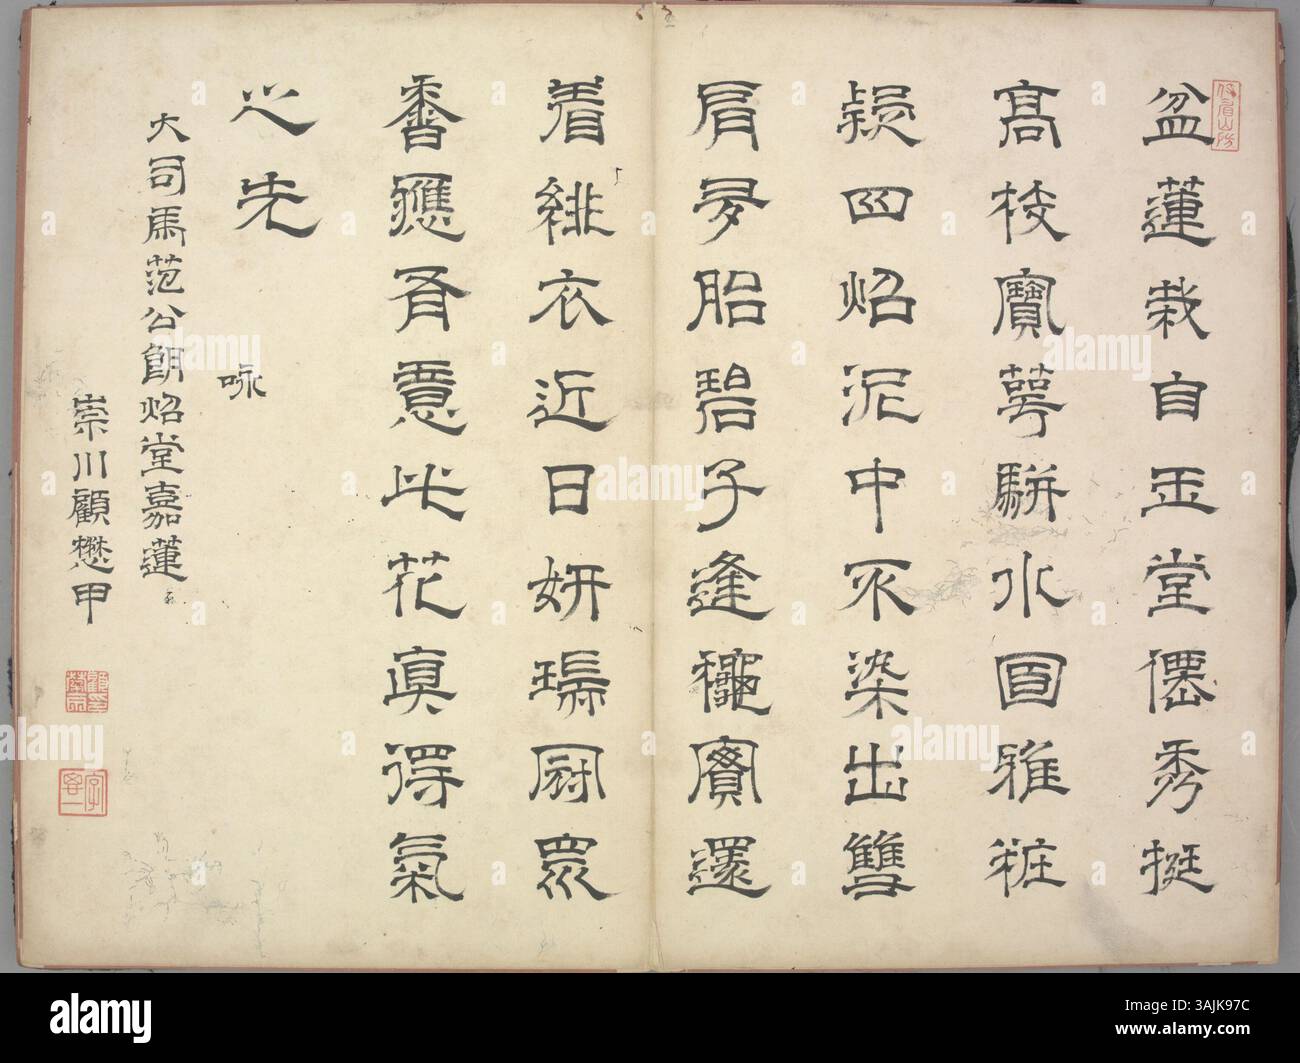 盆蓮栽自玉堂僊秀挺
高枝寶萼駢水圓雅粧
疑四焰泥中不染出雙
肩夢胎碧子逢龝實還
着緋衣近日妍瑞圖眾
香應有意此花真得氣
之先
咏
大司馬范公朗焰堂嘉蓮
崇川顧懋甲
alamy
Image ID: 3AJK97C
www.alamy.com